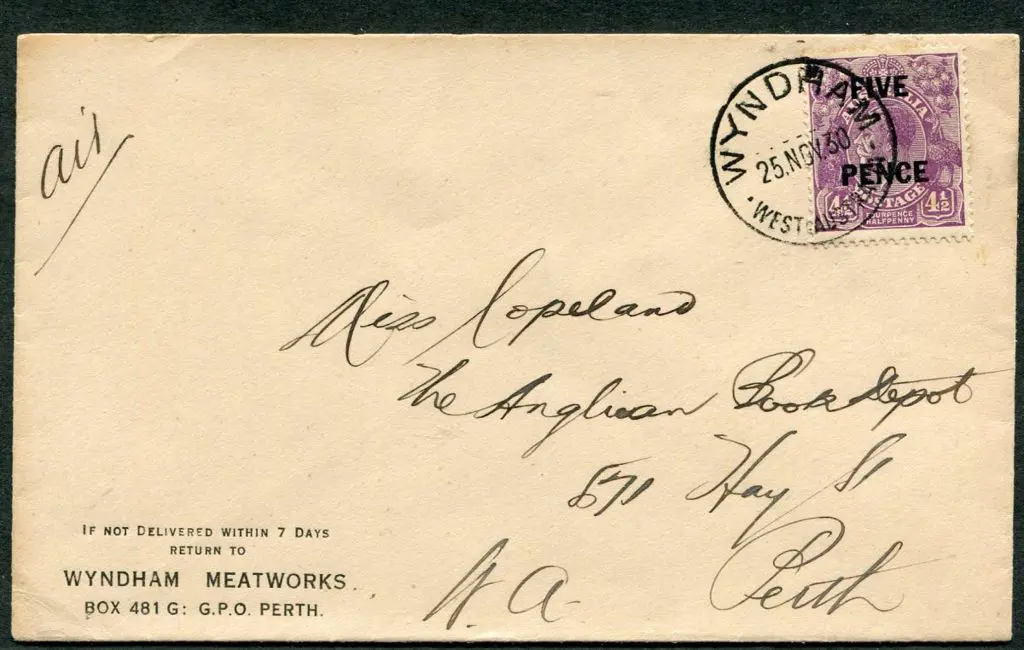 air
WYNDHAM
25.NOV.30
WEST AUST
FIVE
PENCE
POSTAGE
4½
FOURPENCE
HALFPENNY
Miss Copeland
The Anglican Book Depot
571 Hay St
Perth
W.A.
IF NOT DELIVERED WITHIN 7 DAYS
RETURN TO
WYNDHAM MEATWORKS.
BOX 481 G: G.P.O. PERTH.